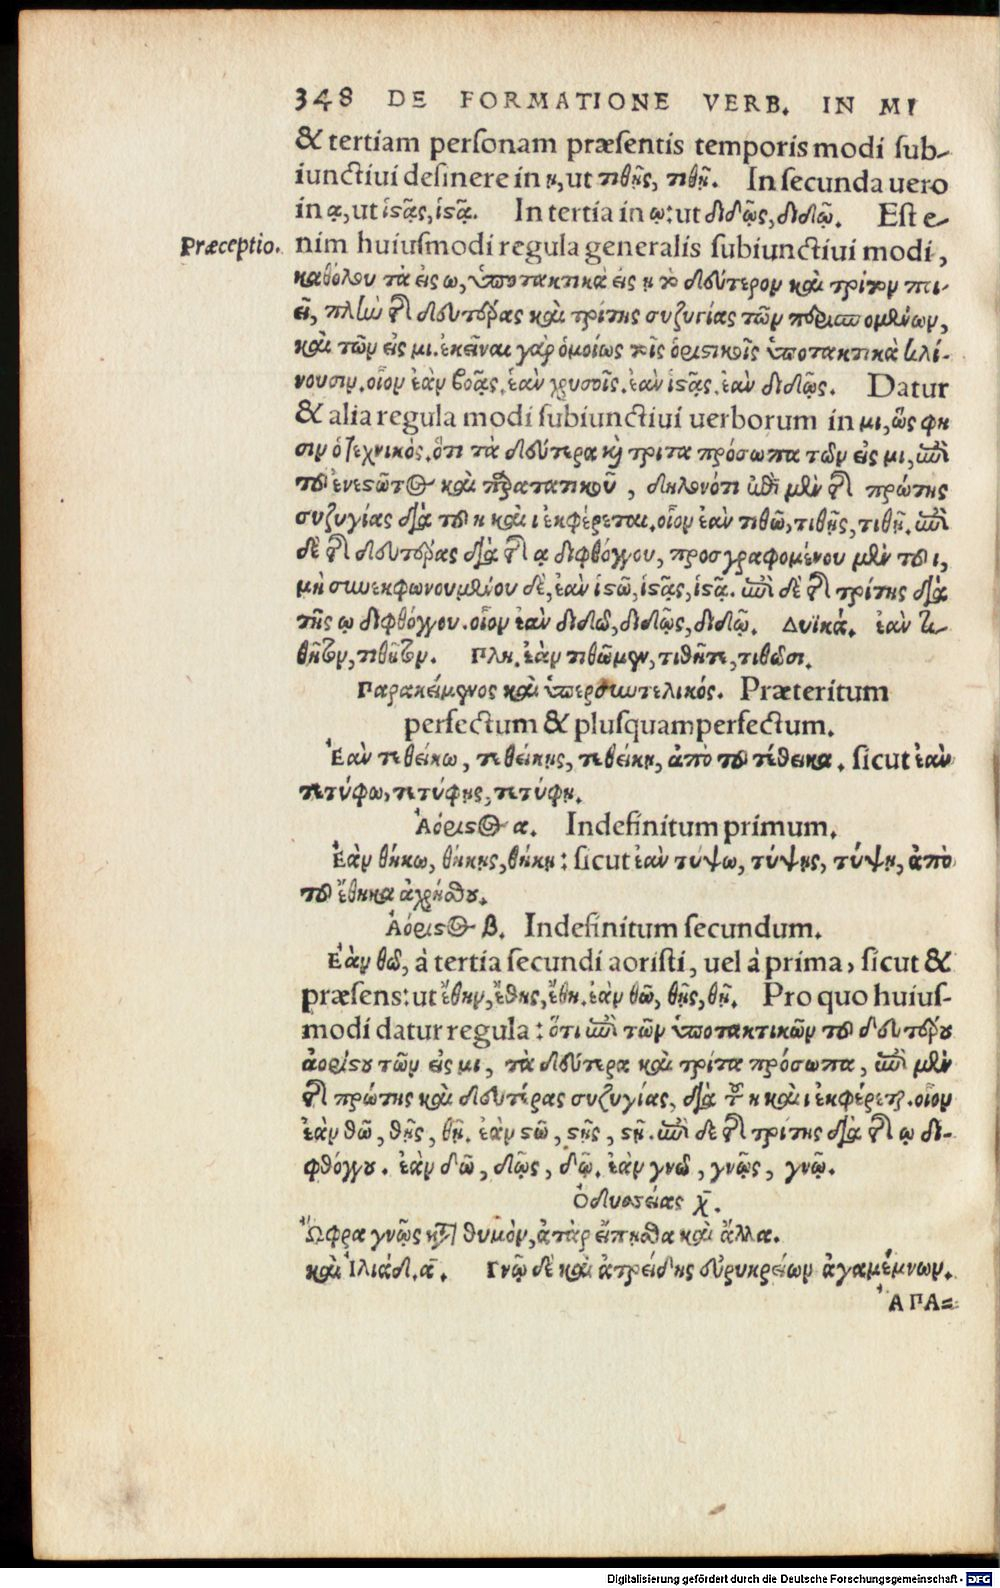 348 DE FORMATIONE VERB. IN MI
& tertiam personam præsentis temporis modi sub-
iunctiui desinere in ῃ, ut τιθῇς, τιθῇ. In secunda uero
in ᾳ, ut ἱςᾷς, ἱςᾷ. In tertia in ῳ: ut διδῷς, διδῷ. Est e-
Præceptio. nim huiusmodi regula generalis subiunctiui modi,
καθόλου τὰ εἰς ω, ὑποτακτικὰ εἰς η τὸ δεύτερον καὶ τρίτον ποι-
εῖ, πλὴν τῆς δευτέρας καὶ τρίτης συζυγίας τῶν περισπωμένων,
καὶ τῶν εἰς μι. ἐκεῖναι γὰρ ὁμοίως τοῖς ὁριστικοῖς ὑποτακτικὰ κλί-
νουσιν. οἷον ἐὰν βοᾷς, ἐὰν χρυσοῖς. ἐὰν ἱςᾷς, ἐὰν διδῷς. Datur
& alia regula modi subiunctiui uerborum in μι, ὥς φη
σιν ὁ τεχνικὸς. ὅτι τὰ δεύτερα καὶ τρίτα πρόσωπα τῶν εἰς μι, ἐπὶ
τοῦ ἐνεςῶτος καὶ παρατατικοῦ, δηλονότι ἐπὶ μὲν τῆς πρώτης
συζυγίας διὰ τοῦ η καὶ ι ἐκφέρεται. οἷον ἐὰν τιθῶ, τιθῇς, τιθῇ. ἐπὶ
δὲ τῆς δευτέρας διὰ τῆς ᾳ διφθόγγου, προσγραφομένου μὲν τοῦ ι,
μὴ συνεκφωνουμένου δὲ, ἐὰν ἱςῶ, ἱςᾷς, ἱςᾷ. ἐπὶ δὲ τῆς τρίτης διὰ
τῆς ῳ διφθόγγου. οἷον ἐὰν διδῶ, διδῷς, διδῷ. Δυϊκά. ἐὰν τι-
θῆτον, τιθῆτον. Πλη. ἐὰν τιθῶμεν, τιθῆτε, τιθῶσι.
Παρακείμενος καὶ ὑπερσυντελικός. Præteritum
perfectum & plusquamperfectum.
Ἐὰν τεθείκω, τεθείκῃς, τεθείκῃ, ἀπὸ τοῦ τέθεικα. sicut ἐὰν
τετύφω, τετύφῃς, τετύφῃ.
Ἀόριςος α. Indefinitum primum.
Ἐὰν θήκω, θήκῃς, θήκῃ: sicut ἐὰν τύψω, τύψῃς, τύψῃ, ἀπὸ
τοῦ ἔθηκα ἀχρήςου.
Ἀόριςος β. Indefinitum secundum.
Ἐὰν θῶ, à tertia secundi aoristi, uel à prima, sicut &
præsens: ut ἔθην, ἔθης, ἔθη. ἐὰν θῶ, θῇς, θῇ. Pro quo huius-
modi datur regula: ὅτι ἐπὶ τῶν ὑποτακτικῶν τοῦ δευτέρου
ἀορίςου τῶν εἰς μι, τὰ δεύτερα καὶ τρίτα πρόσωπα, ἐπὶ μὲν
τῆς πρώτης καὶ δευτέρας συζυγίας, διὰ τοῦ η καὶ ι ἐκφέρεται. οἷον
ἐὰν θῶ, θῇς, θῇ. ἐὰν ςῶ, ςῇς, ςῇ. ἐπὶ δὲ τῆς τρίτης διὰ τῆς ῳ δι-
φθόγγου. ἐὰν δῶ, δῷς, δῷ. ἐὰν γνῶ, γνῷς, γνῷ.
Ὀδυσσείας χ̄.
Ὤφρα γνῷς κατὰ θυμὸν, ἀτὰρ εἴπῃσθα καὶ ἄλλα.
καὶ Ἰλιάδ. ᾱ. Γνῷ δὲ καὶ ἀτρείδης εὐρυκρείων ἀγαμέμνων.
ἈΠΑ=
Digitalisierung gefördert durch die Deutsche Forschungsgemeinschaft - DFG